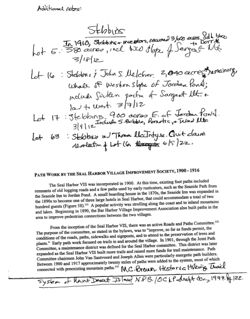 Additional notes:
Stebbins
In 1910, Stebbins + investors, secured 3,600 acres
Lot 5: 380 acres, incl NW slope of Sargent Mt
3/12/12
Lot 16: Stebbins & John S. Melcher, 2,040 acres,
whole of western slope of Jordan Pond,
include sixteen paths of Sargent Mt
3/7/12
Lot 17: Stebbins, 900 acres E of Jordan Pond
3/7/12 include
Lot 69: Stebbins w/ Thomas McIntyre. Cut down
6N/22.
PATH WORK BY THE SEAL HARBOR VILLAGE IMPROVEMENT SOCIETY, 1900 - 1916
The Seal Harbor VIS was incorporated in 1900. At this time, existing foot paths included
remnants of old logging roads and a few paths used by early rusticators, such as the Seaside Path from
the Seaside Inn to Jordan Pond. A small boarding house in the 1870s, the Seaside Inn was expanded in
the 1890s to become one of three large hotels in Seal Harbor, that could accommodate a total of two
hundred guests (Figure 58). A popular activity was strolling along the coast and to inland mountains
and lakes. Beginning in 1890, the Bar Harbor Village Improvement Association also built paths in the
area to improve pedestrian connections between the two villages.
From the inception of the Seal Harbor VIS, there was an active Roads and Paths Committee.
The purpose of the committee, as stated in the bylaws, was to "improve, so far as funds permit, the
conditions of the roads, paths, sidewalks and signposts, and to attend to the preservation of trees and
plants." Early path work focused on trails in and around the village. In 1901, through the Joint Path
Committee, a maintenance district was defined for the Seal Harbor committee. This district was later
expanded as the Seal Harbor VIS built more trails and raised more funds for trail maintenance. Path
Committee chairmen John Van Santvoord and Joseph Allen were particularly energetic path builders.
Between 1900 and 1917 approximately twenty miles of paths were added to the system, most of which
connected with preexisting mountain paths. M.C. Brown, Historic Hiking Trail
System of Mount Desert Island NPS/OCLP draft copy, 1999, p. 122.